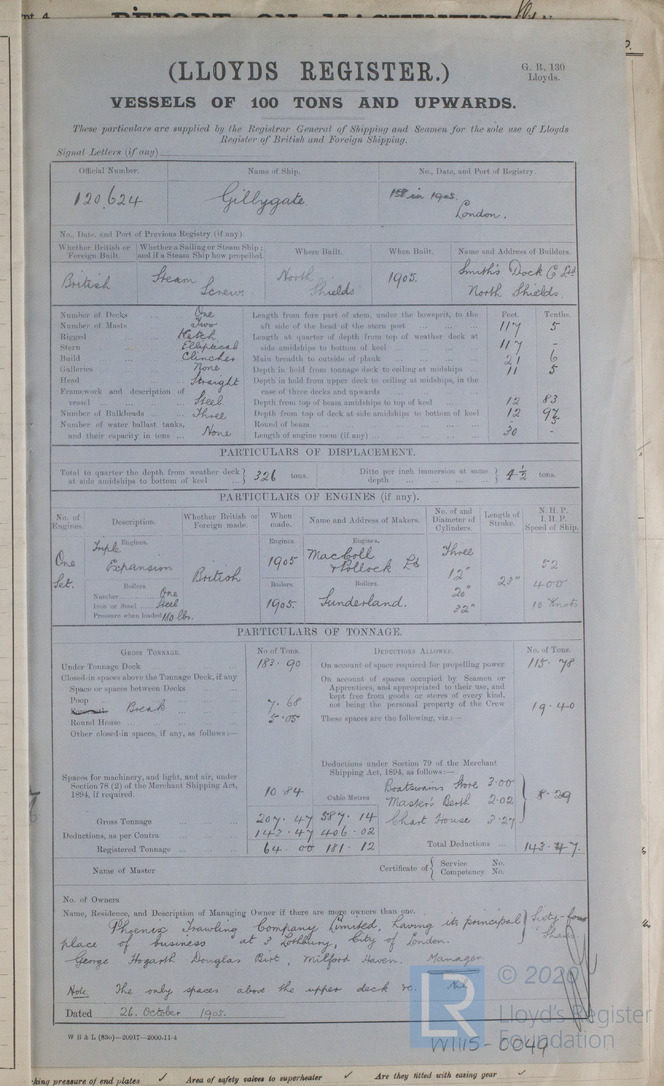 REPORT ON MACHINERY
(LLOYDS REGISTER.)
G. R. 130
Lloyds.
VESSELS OF 100 TONS AND UPWARDS.
These particulars are supplied by the Registrar General of Shipping and Seamen for the sole use of Lloyds
Register of British and Foreign Shipping.
Signal Letters (if any)
Official Number. Name of Ship. No., Date, and Port of Registry.
120,624 Gillygate 158 in 1905.
London.
No., Date, and Port of Previous Registry (if any).
Whether British or Foreign Built. Whether a Sailing or Steam Ship; and if a Steam Ship how propelled. Where Built. When Built. Name and Address of Builders.
British Steam Screw North Shields 1905. Smith's Dock Co Ltd
North Shields.
Number of Decks ... One Length from fore part of stem, under the bowsprit, to the Feet. Tenths.
Number of Masts ... Two aft side of the head of the stern post ... 117 5
Rigged ... Ketch Length at quarter of depth from top of weather deck at
Stern ... Elliptical side amidships to bottom of keel ... 117 -
Build ... Clincher Main breadth to outside of plank ... 21 6
Galleries ... None Depth in hold from tonnage deck to ceiling at midships 11 5
Head ... Straight Depth in hold from upper deck to ceiling at midships, in the
Framework and description of case of three decks and upwards ...
vessel ... Steel Depth from top of beam amidships to top of keel ... 12 83
Number of Bulkheads ... Three Depth from top of deck at side amidships to bottom of keel 12 93
Number of water ballast tanks, Round of beam ... 5
and their capacity in tons ... None Length of engine room (if any) ... 30 -
PARTICULARS OF DISPLACEMENT.
Total to quarter the depth from weather deck at side amidships to bottom of keel ... } 326 tons. Ditto per inch immersion at same depth ... } 4 1/2 tons.
PARTICULARS OF ENGINES (if any).
No. of Engines. Description. Whether British or Foreign made. When made. Name and Address of Makers. No. of and Diameter of Cylinders. Length of Stroke. N. H. P. I. H. P. Speed of Ship.
Engines. Engines Engines.
One Triple Expansion 1905 MacColl & Pollock Ld Three
Set. British 12" 23" 52
Boilers Boilers. Boilers. 20" 400
Number One 32" 10 Knots
Iron or Steel Steel 1905. Sunderland.
Pressure when loaded 180 lbs.
PARTICULARS OF TONNAGE.
GROSS TONNAGE. No of Tons. DEDUCTIONS ALLOWED. No. of Tons.
Under Tonnage Deck ... 183.90 On account of space required for propelling power 115.78
Closed-in spaces above the Tonnage Deck, if any On account of spaces occupied by Seamen or
Space or spaces between Decks ... Apprentices, and appropriated to their use, and
Poop ... kept free from goods or stores of every kind,
Break ... 7.68 not being the personal property of the Crew 19.40
Round House ... 5.05 These spaces are the following, viz.:—
Other closed-in spaces, if any, as follows:—
Deductions under Section 79 of the Merchant
Shipping Act, 1894, as follows:—
Spaces for machinery, and light, and air, under
Section 78 (2) of the Merchant Shipping Act,
1894, if required. 10.84 Cubic Metres
Boatswains Store 3.00
Master's Berth 2.02 } 8.29
Chart House 3.27
Gross Tonnage ... 207.47 587.14
Deductions, as per Contra ... 143.47 406.02
Registered Tonnage ... 64.00 181.12 Total Deductions ... 143.47.
Name of Master Certificate of { Service No.
Competency No.
No. of Owners
Name, Residence, and Description of Managing Owner if there are more owners than one.
Phoenix Trawling Company Limited, having its principal } Sixty-four
place of business at 3 Lothbury, City of London. Shares
George Hogarth Douglas Birt, Milford Haven. Manager
Note. The only spaces above the upper deck &c. Nil
Dated 26. October 1905.
W B & L (83o)—20917—2000-11-4
© 2020
LR
Lloyd's Register
Foundation
W1115-0049
king pressure of end plates Area of safety valves to superheater Are they fitted with easing gear